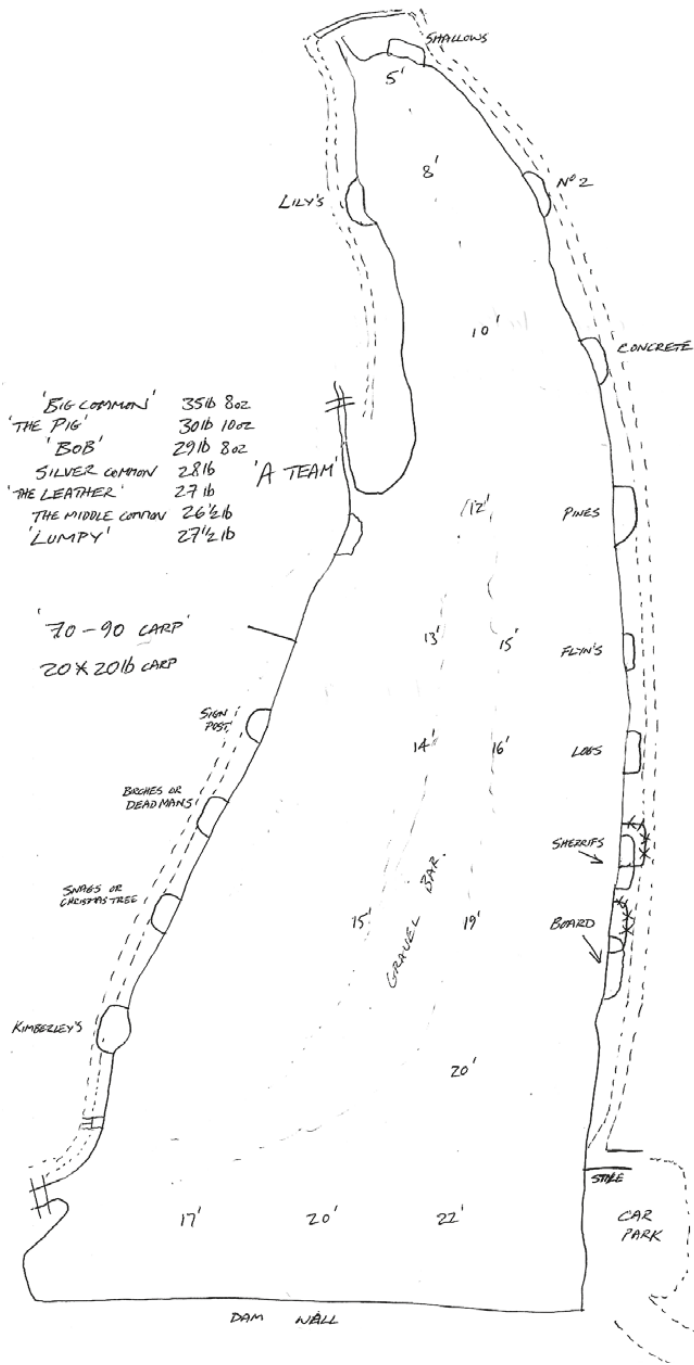 SHALLOWS
5'
8'
Nº 2
LILY'S
10'
CONCRETE
'BIG COMMON' 35lb 8oz
'THE PIG' 30lb 10oz
'BOB' 29lb 8oz
SILVER COMMON 28lb
'A TEAM'
'THE LEATHER' 27lb
THE MIDDLE COMMON 26½lb
'LUMPY' 27½lb
12'
PINES
'70-90 CARP'
20 x 20lb CARP
13'
15'
FLYN'S
SIGN
POST
14'
16'
LOGS
BIRCHES OR
DEADMANS
SHERRIFS
SNAGS OR
CHRISTMAS TREE
15'
GRAVEL BAR.
19'
BOARD
KIMBERLEY'S
20'
STILE
17'
20'
22'
CAR
PARK
DAM WALL